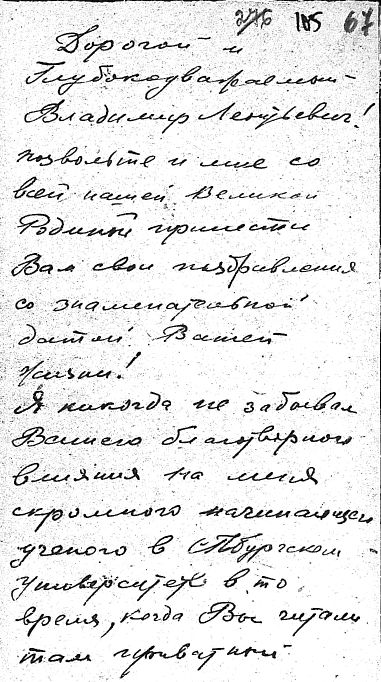 276 185 67
Дорогой и
Глубокоуважаемый
Владимир Леонтьевич!
позвольте и мне со
всей нашей Великой
Родиной принести
Вам свои поздравления
со знаменательной
датой Вашей
жизни!
Я никогда не забывал
Вашего благотворного
влияния на меня
скромного начинающего
ученого в СПбургском
университете в то
время, когда Вы читали
там приватный